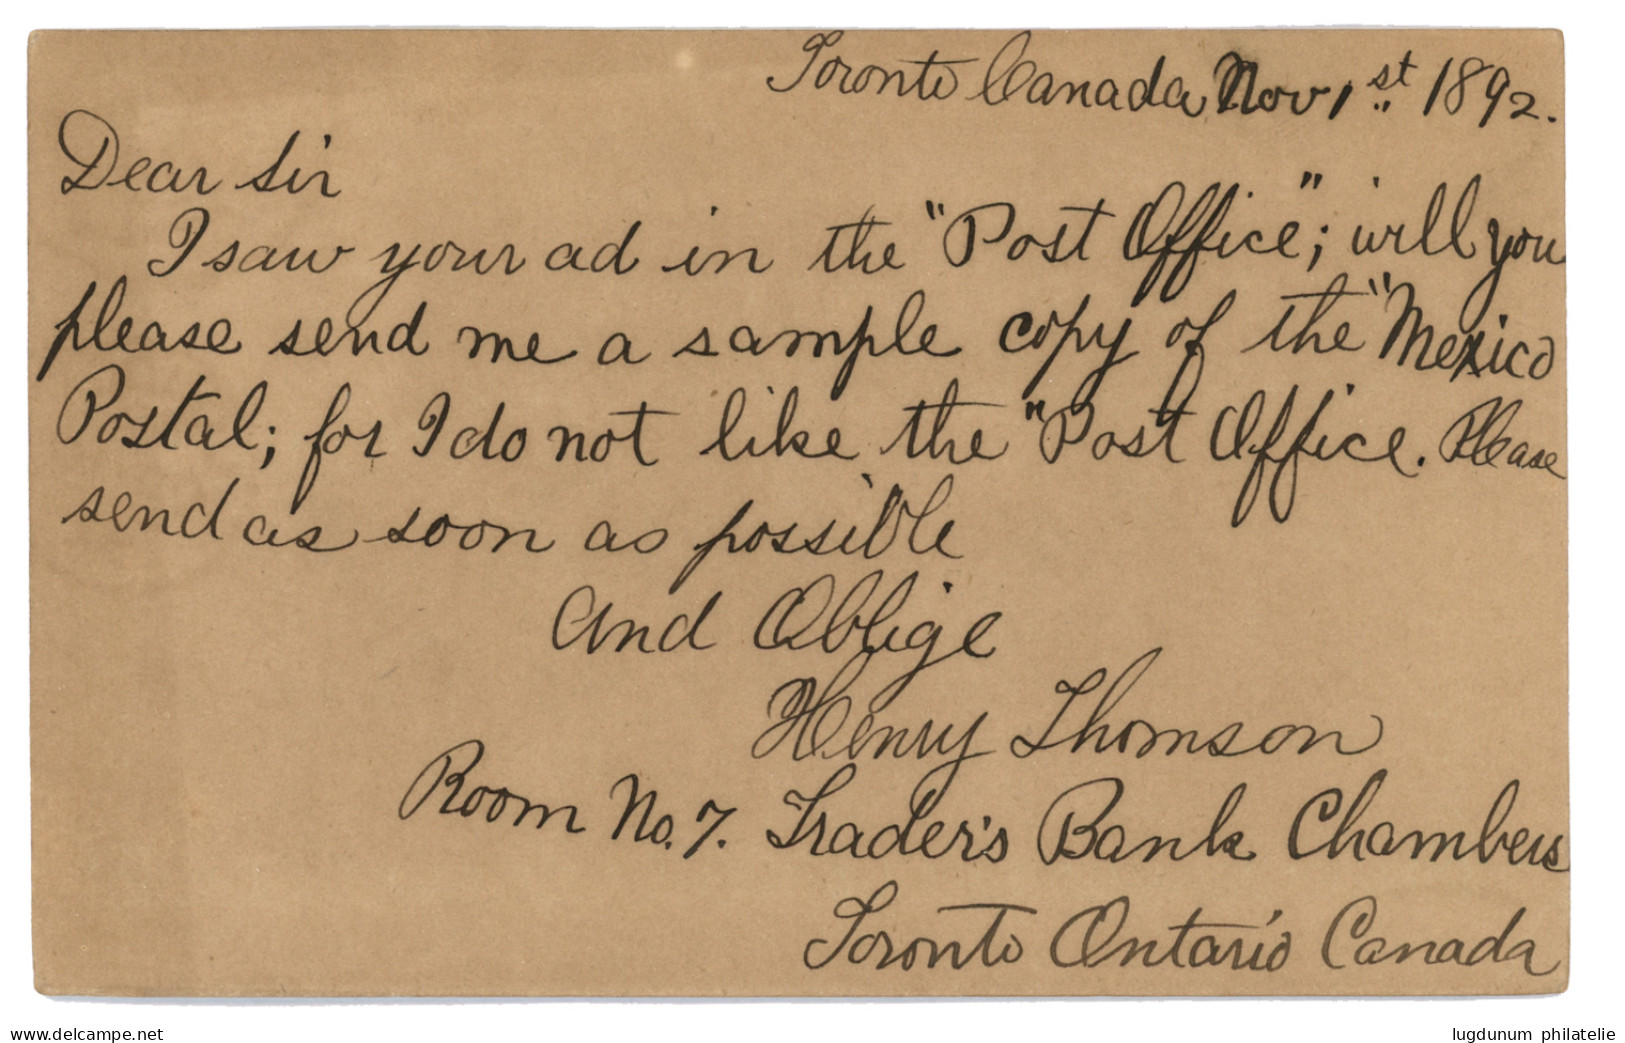 Toronto Canada Nov 1st 1892.
Dear Sir
I saw your ad in the "Post Office"; will you
please send me a sample copy of the "Mexico
Postal; for I do not like the "Post Office. Please
send as soon as possible
And Oblige
Henry Thomson
Room No. 7. Trader's Bank Chambers
Toronto Ontario Canada
www.delcampe.net
lugdunum philatelie